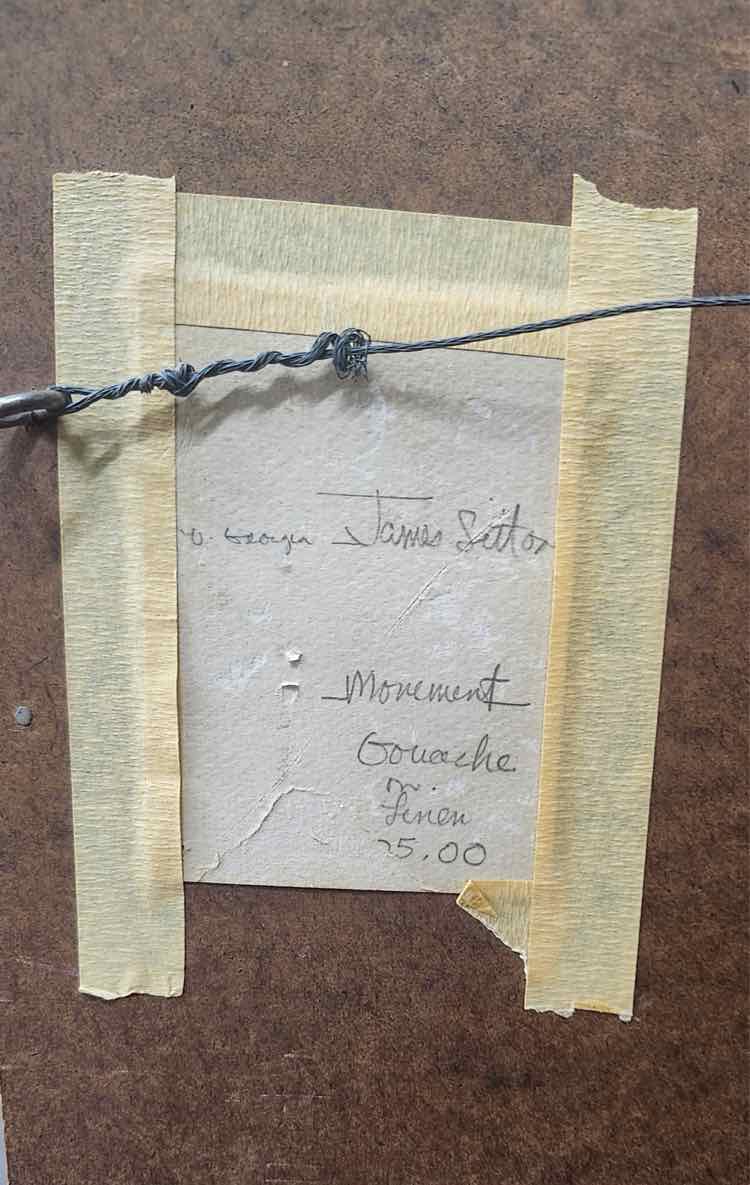 James Sitton
Movement
Gouache
Linen
25.00